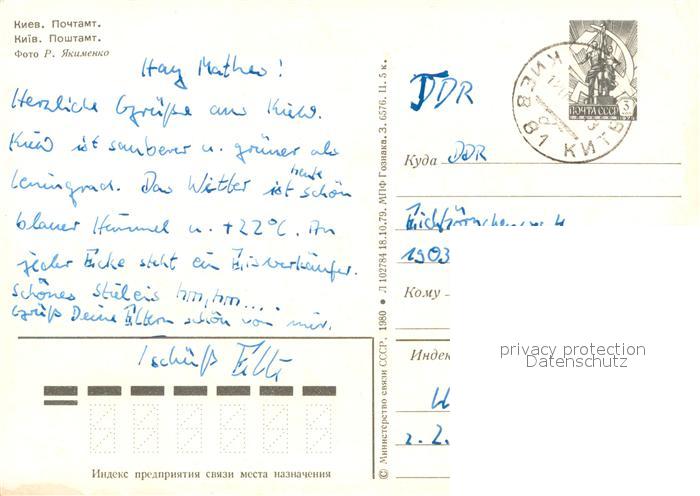 Киев. Почтамт.
Київ. Поштамт.
Фото Р. Якименко
Hay Matheo!
Herzliche Grüße aus Kiew.
Kiew ist sauberer u. grüner als
Leningrad. Das Wetter ist heute schön
blauer Himmel u. +22°C. An
jeder Ecke steht ein Eisverkäufer.
schönes Stieleis hm, hm....
Grüß Deine Eltern schön von mir.
Tschüß
Индекс предприятия связи места назначения
© Министерство связи СССР, 1980 ● Л 102784 18.10.79. МПФ Гознака. З. 6576. Ц. 5 к.
ПОЧТА СССР
3
КИЕВ 81 КИЇВ
DDR
Куда DDR
1903
Кому
Индек
z. Z.
privacy protection
Datenschutz